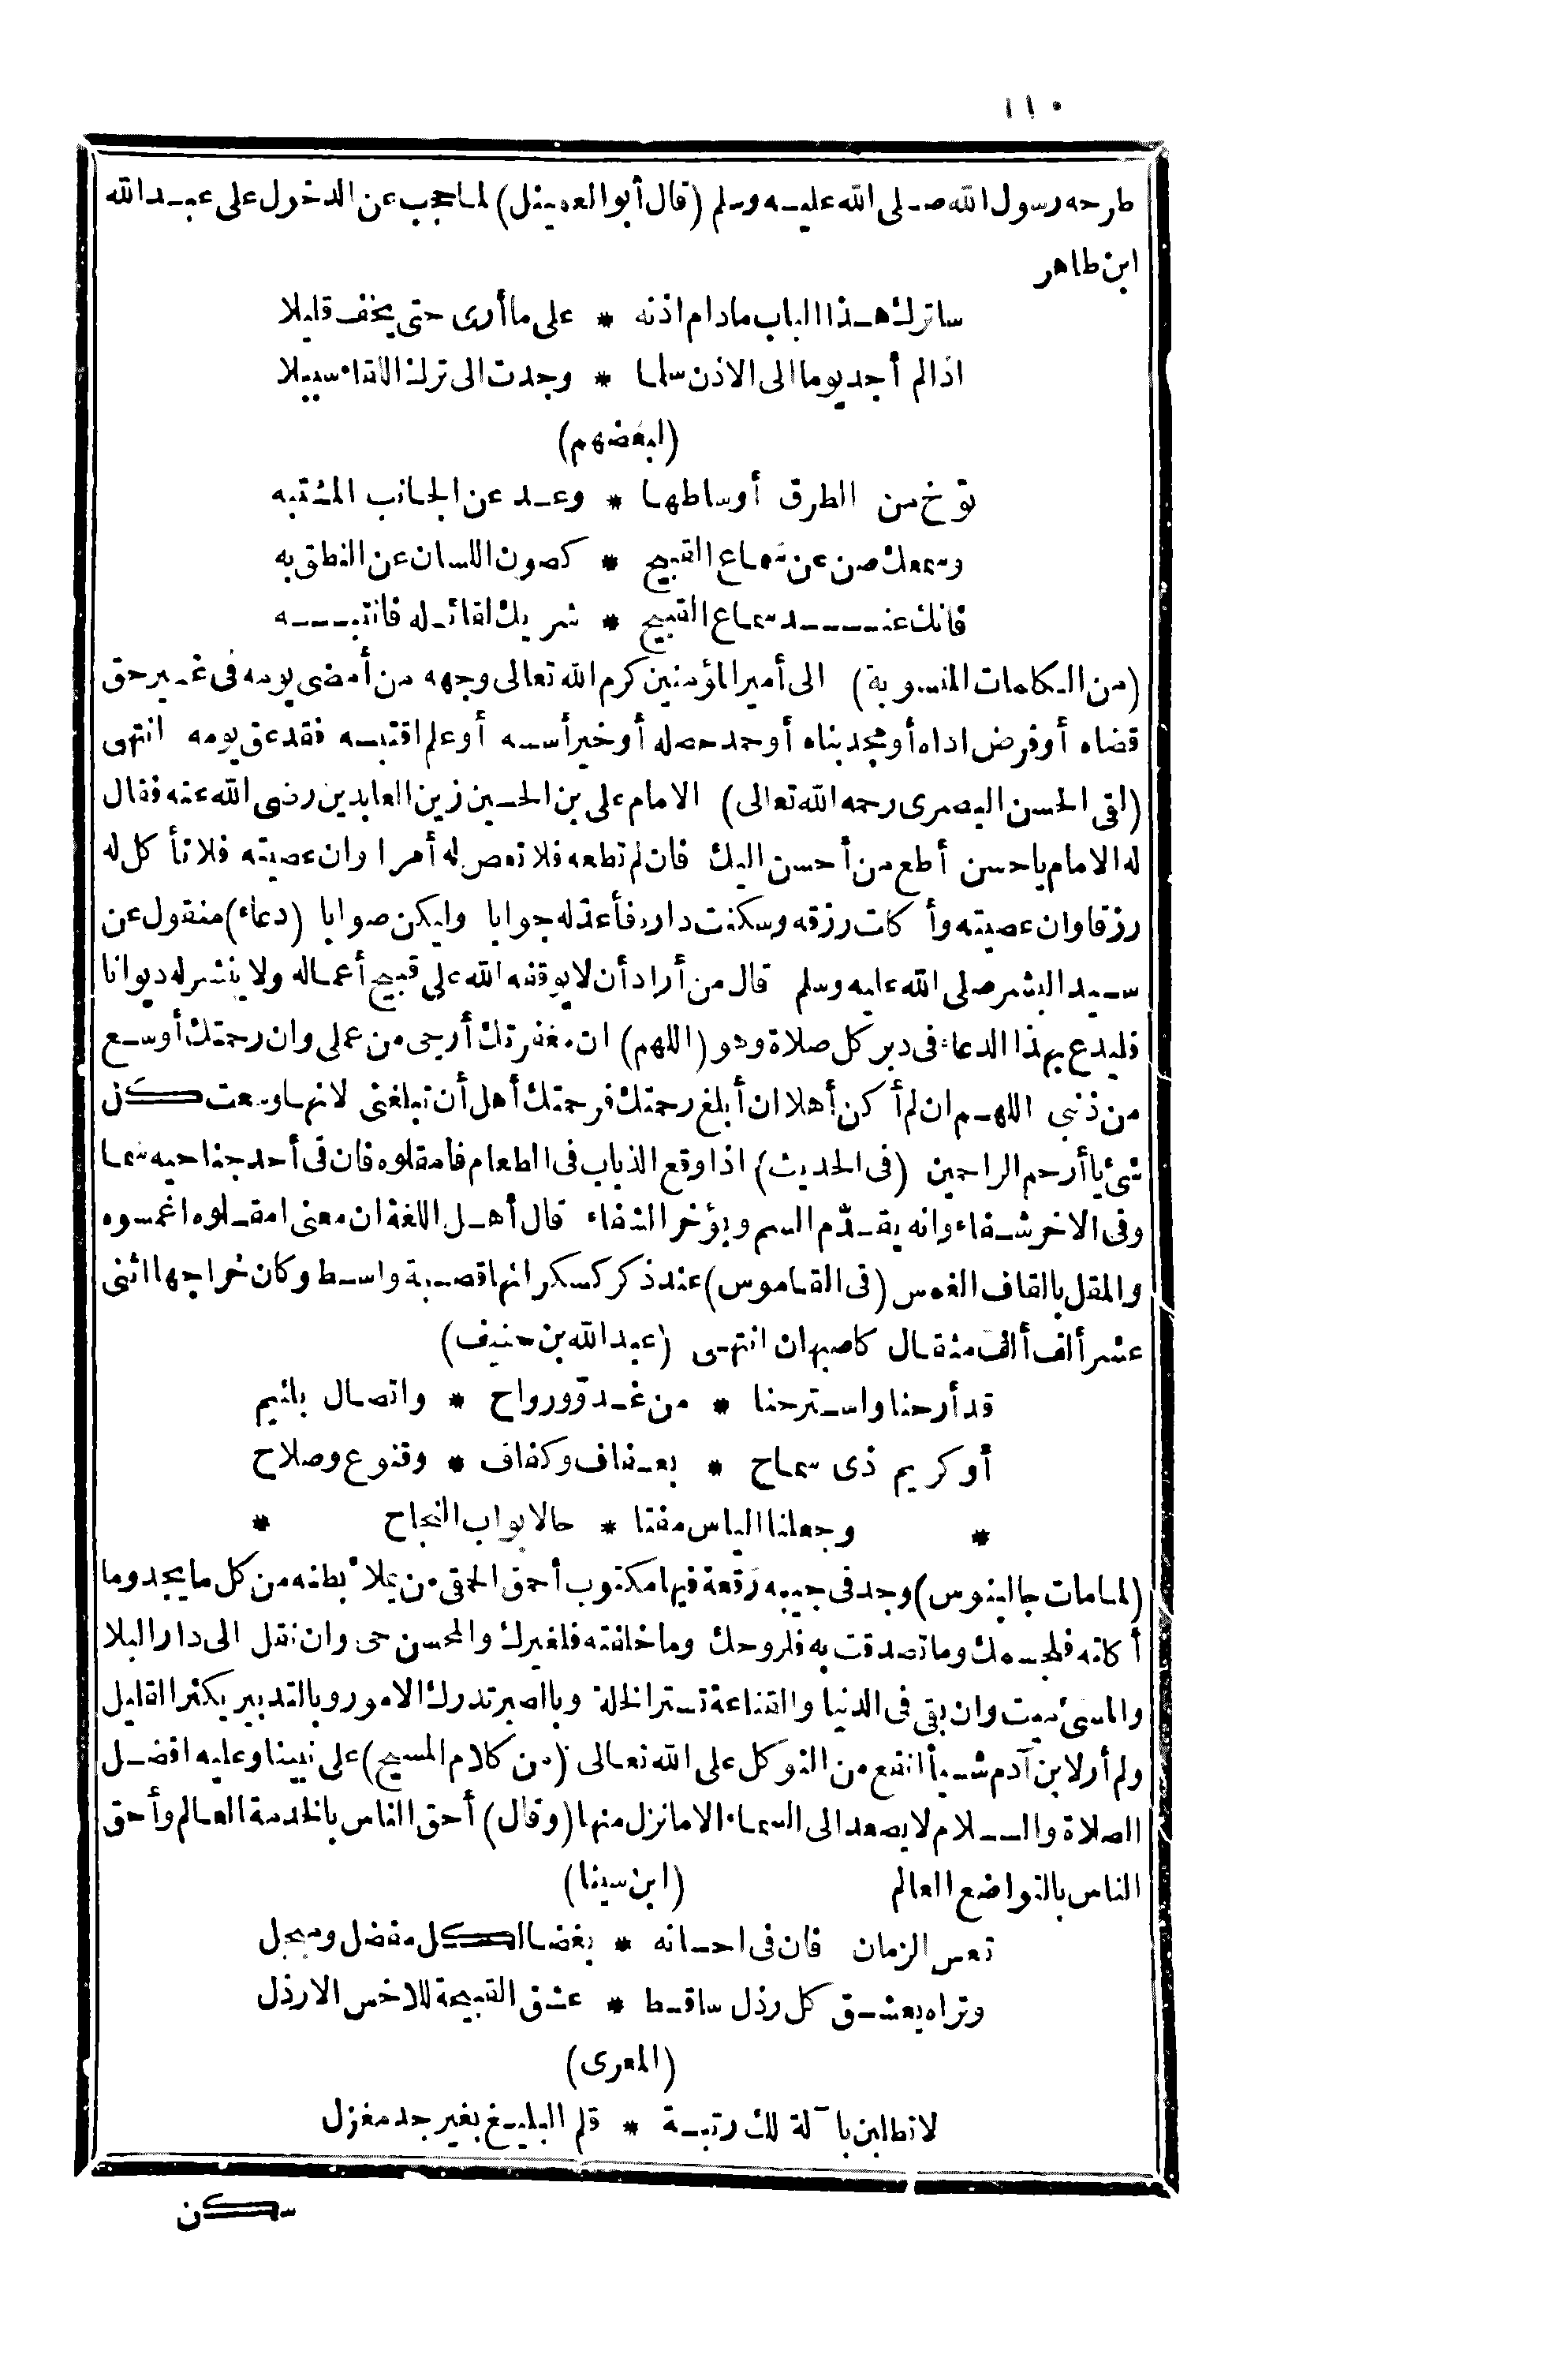 ١١٠
طرحه رسول الله صلى الله عليه وسلم (قال أبو العميثل) لما حجب عن الدخول على عبد الله
ابن طاهر
ساترك هذا الباب مادام اذنه * على ما أرى حتى يخف قليلا
اذا لم أجد يوما الى الاذن سلما * وجدت الى ترك اللقاء سبيلا
(لبعضهم)
توخ من الطرق أوساطها * وعد عن الجانب المشتبه
وسمعك صن عن سماع القبيح * كصون اللسان عن النطق به
فانك عند سماع القبيح * شريك لقائله فانتبه
(من الكلمات المنسوبة) الى أمير المؤمنين كرم الله تعالى وجهه من أمضى يومه فى غير حق
قضاه أو فرض اداه أو مجد بناه أو حمد حصله أو خير أسسه أو علم اقتبسه فقد عق يومه انتهى
(لقى الحسن البصرى رحمه الله تعالى) الامام على بن الحسين زين العابدين رضى الله عنه فقال
له الامام يا حسن أطع من أحسن اليك فان لم تطعه فلا تعص له أمرا وان عصيته فلا تأكل له
رزقا وان عصيته وأكلت رزقه وسكنت داره فأعد له جوابا وليكن صوابا (دعاء) منقول عن
سيد البشر صلى الله عليه وسلم قال من أراد أن لا يوقفه الله على قبيح أعماله ولا ينشر له ديوانا
فليدع بهذا الدعاء فى دبر كل صلاة وهو (اللهم) ان مغفرتك أرجى من عملى وان رحمتك أوسع
من ذنبى اللهم ان لم أكن أهلا ان أبلغ رحمتك فرحمتك أهل أن تبلغنى لانها وسعت كل
شئ يا أرحم الراحمين (فى الحديث) اذا وقع الذباب فى الطعام فامقلوه فان فى أحد جناحيه سما
وفى الاخر شفاء وانه يقدّم السم ويؤخر الشفاء قال أهل اللغة ان معنى امقلوه اغمسوه
والمقل بالقاف الغمس (فى القاموس) عند ذكر كسكر انها قصبة واسط وكان خراجها اثنى
عشر ألف ألف مثقال كاصبهان انتهى (عبد الله بن حنيف)
قد أرحنا واسترحنا * من غدوّ ورواح * واتصال بلئيم
أو كريم ذى سماح * بعفاف وكفاف * وقنوع وصلاح
* وجعلنا الياس مفتا * حا لابواب النجاح *
(لما مات جالينوس) وجد فى جيبه رقعة فيها مكتوب أحمق الحمقى من يملأ بطنه من كل ما يجد وما
أكلته فلجسمك وما تصدقت به فلروحك وما خلفته فلغيرك والمحسن حى وان نقل الى دار البلا
والمسئ ميت وان بقى فى الدنيا والقناعة تستر الخلة وبالصبر تدرك الامور وبالتدبير يكثر القليل
ولم أر لابن آدم شيأ انفع من التوكل على الله تعالى (من كلام المسيح) على نبينا وعليه افضل
الصلاة والسلام لا يصعد الى السماء الا ما نزل منها (وقال) أحق الناس بالخدمة العالم وأحق
الناس بالتواضع العالم (ابن سينا)
تعس الزمان فان فى احسانه * بغضا لكل مفضل ومبجل
وتراه يعشق كل رذل ساقط * عشق القبيحة للاخس الارذل
(المعرى)
لا تطلبن بآلة لك رتبة * قلم البليغ بغير جد مغزل
سكن